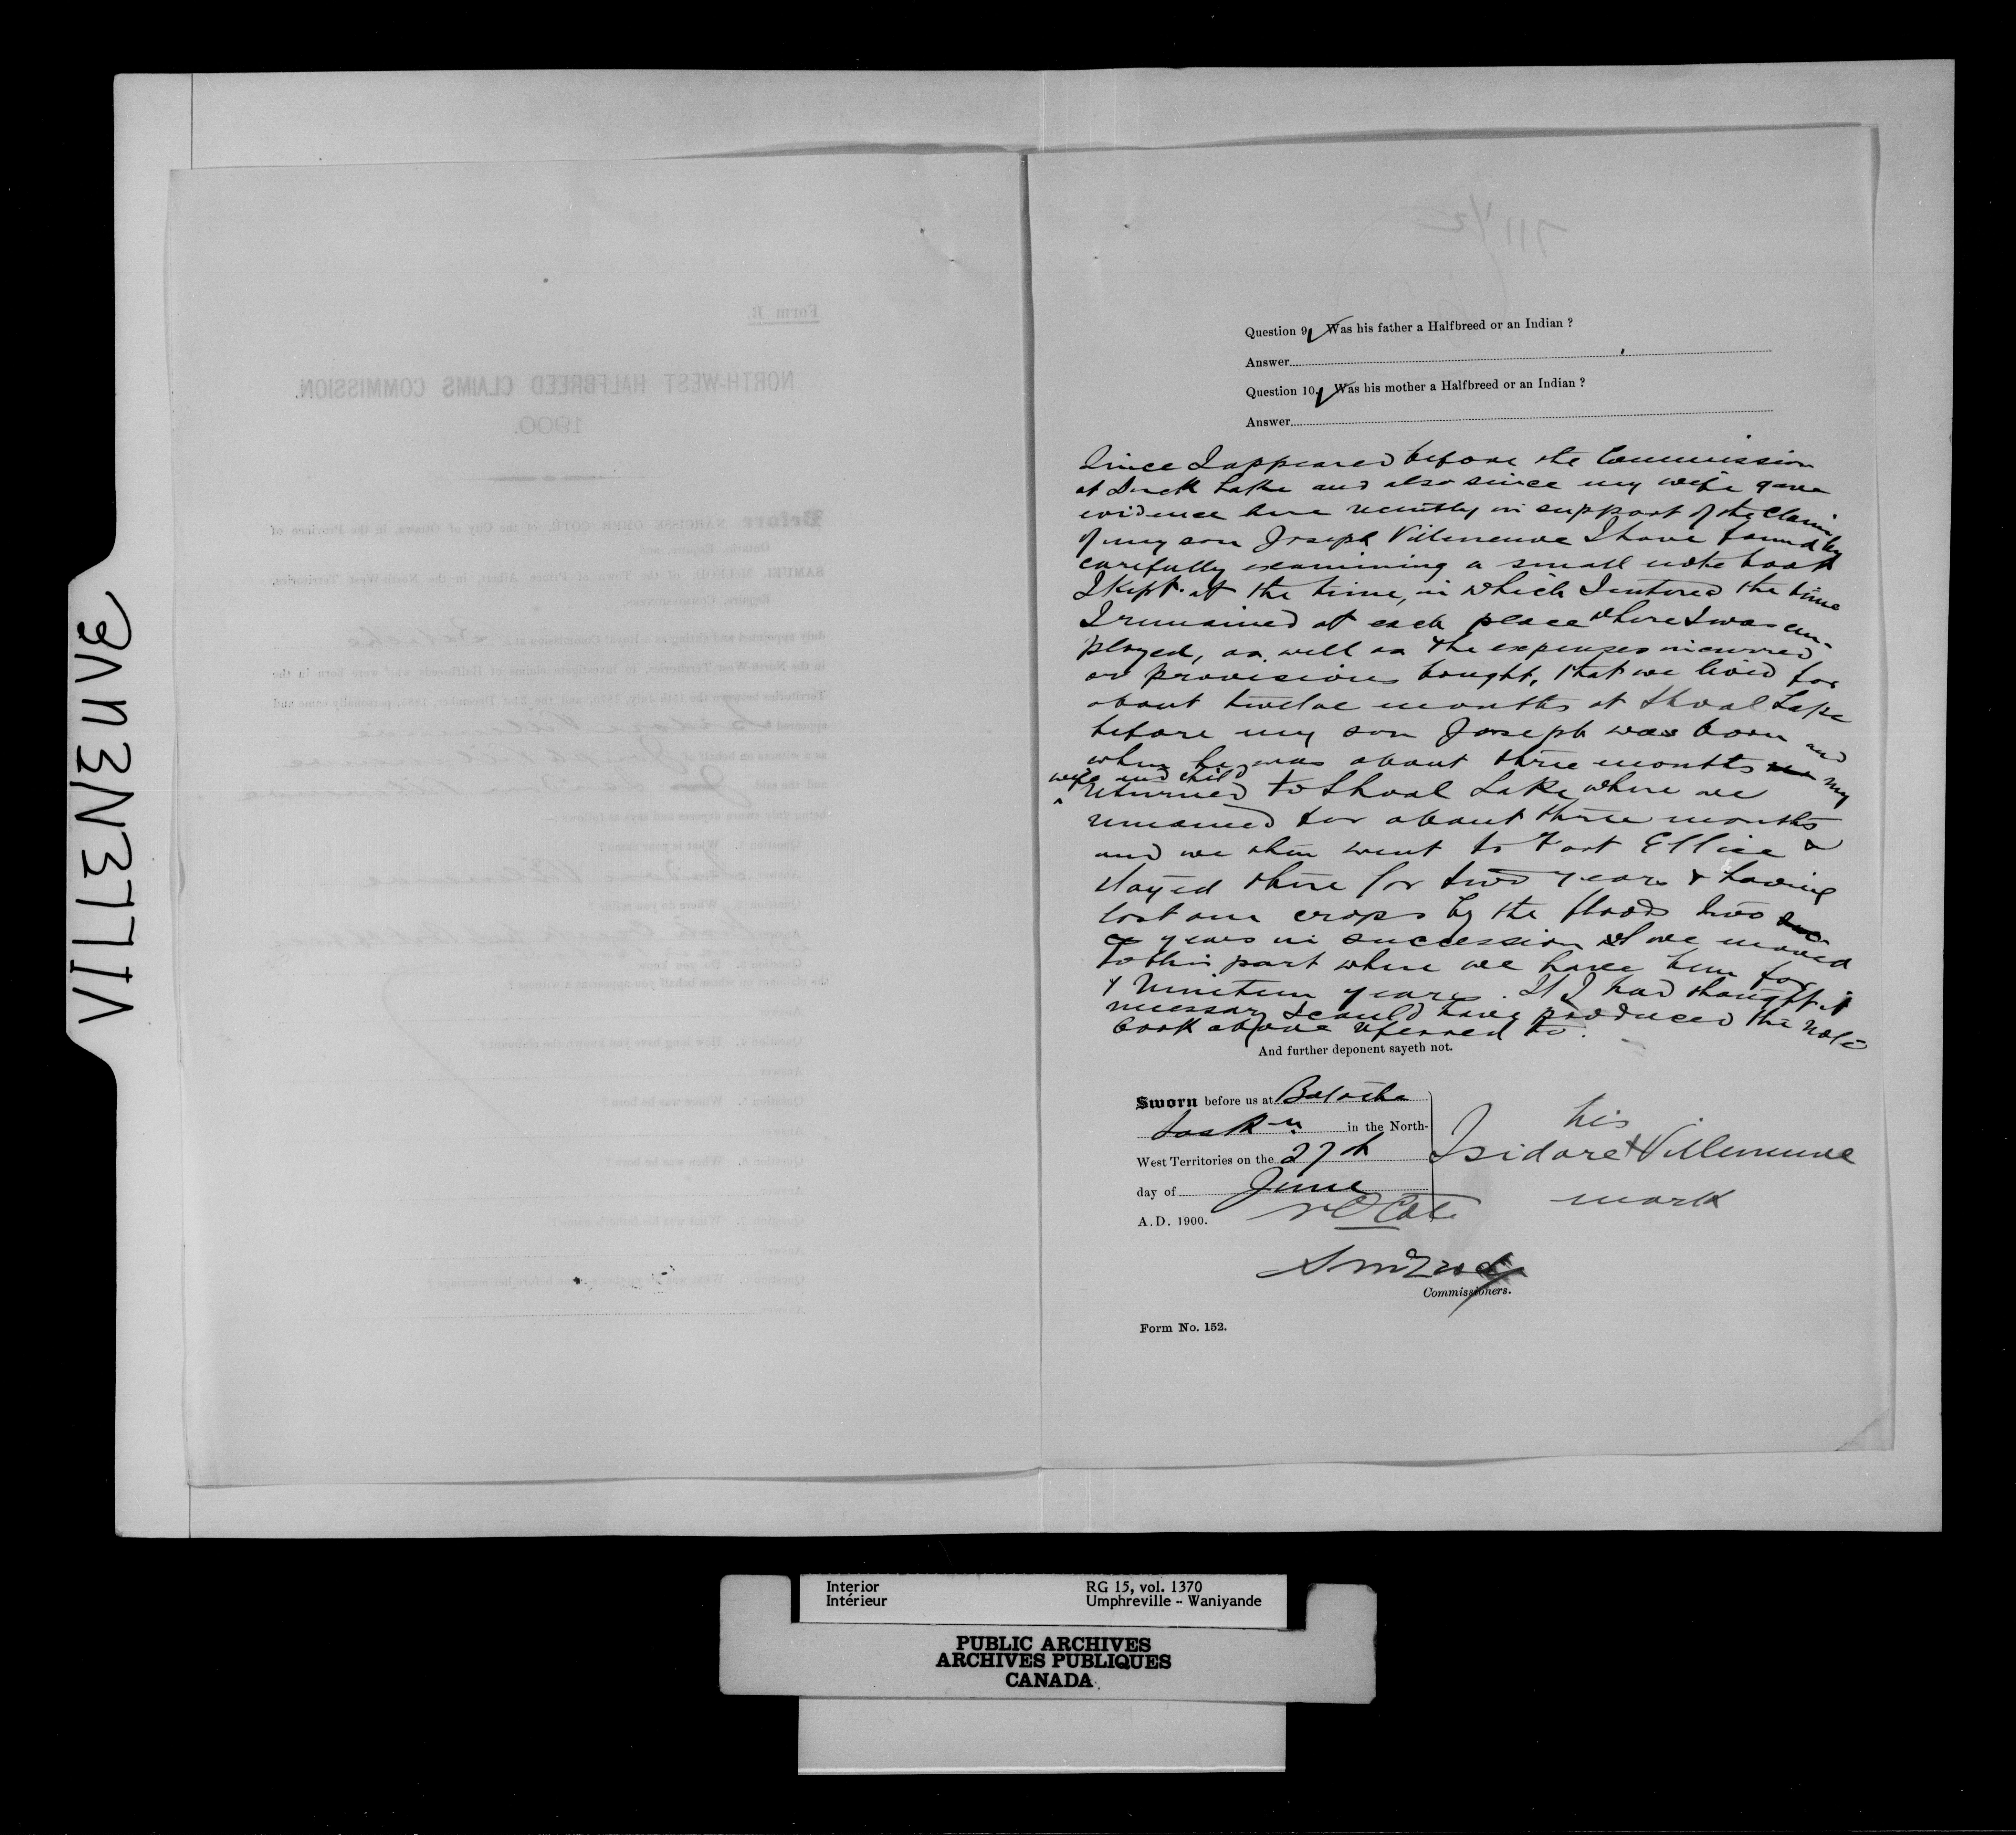 VILLENEUVE
Form B.
NORTH-WEST HALFBREED CLAIMS COMMISSION.
1900.
Before NARCISSE OMER COTÉ, of the City of Ottawa, in the Province of
Ontario, Esquire, and
SAMUEL McLEOD, of the Town of Prince Albert, in the North-West Territories,
Esquire, Commissioners,
duly appointed and sitting as a Royal Commission at Batoche
in the North-West Territories, to investigate claims of Halfbreeds who were born in the
Territories between the 15th July, 1870, and the 31st December, 1885, personally came and
appeared Isidore Villeneuve
as a witness on behalf of Joseph Villeneuve
and the said Isidore Villeneuve
being duly sworn deposes and says as follows:—
Question 1. What is your name?
Answer Isidore Villeneuve
Question 2. Where do you reside?
Answer
Question 3. Do you know
the claimant on whose behalf you appear as a witness?
Answer
Question 4. How long have you known the claimant?
Answer
Question 5. Where was he born?
Answer
Question 6. When was he born?
Answer
Question 7. What was his father's name?
Answer
Question 8. What was his mother's name before her marriage?
A
711 1/2
Question 9. Was his father a Halfbreed or an Indian ?
Answer
Question 10. Was his mother a Halfbreed or an Indian ?
Answer
Since I appeared before the Commission
at Duck Lake and also since my wife gave
evidence here recently in support of the claim
of my son Joseph Villeneuve I have found by
carefully examining a small note book
I kept at the time, in which I entered the time
I remained at each place where I was em-
ployed, as well as the expenses incurred
or provisions bought, that we lived for
about twelve months at Shoal Lake
before my son Joseph was born and
when he was about three months my
wife and child
returned to Shoal Lake where we
remained for about three months
and we then went to Fort Ellice &
stayed there for two years & having
lost our crops by the floods two
years in succession we moved
to this part where we have been for
nineteen years. If I had thought it
necessary I could have produced the note
book above referred to.
And further deponent sayeth not.
Sworn before us at Batoche
Sask n in the North-
West Territories on the 27th
day of June
A.D. 1900.
his
Isidore X Villeneuve
mark
N O Coté
S McLeod
Commissioners.
Form No. 152.
Interior
Intérieur
RG 15, vol. 1370
Umphreville - Waniyande
PUBLIC ARCHIVES
ARCHIVES PUBLIQUES
CANADA